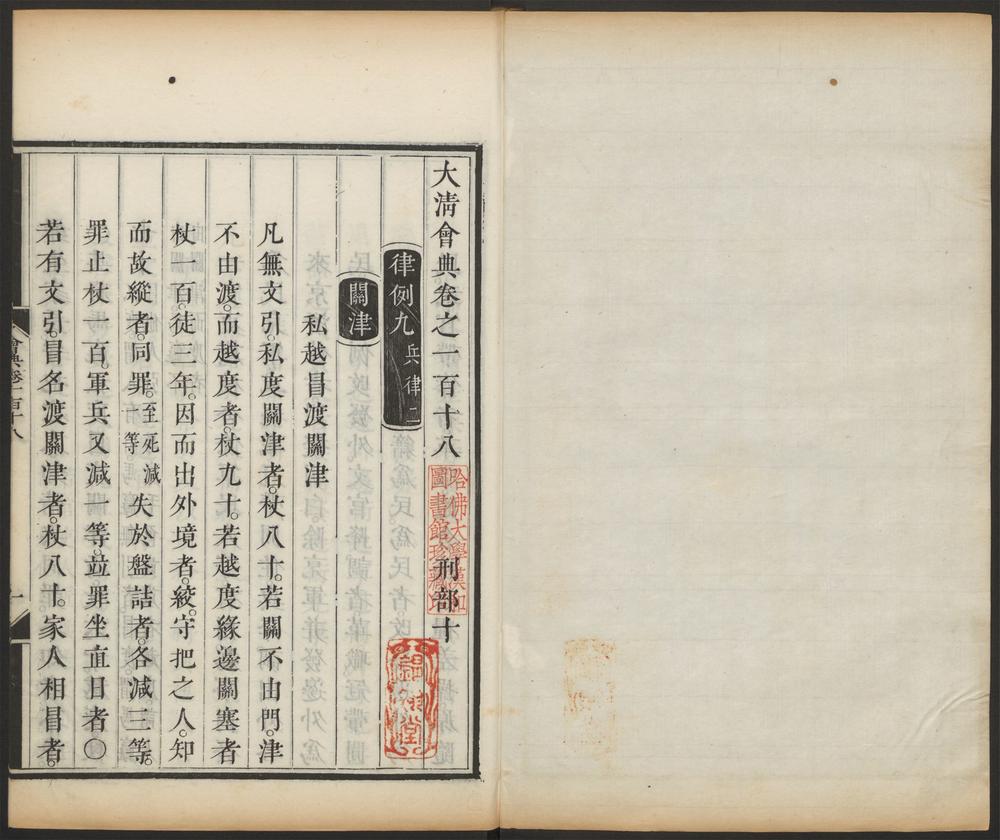 大淸會典卷之一百十八　刑部十
哈佛大學漢和
圖書館珍藏印
律例九兵律二
關津
私越冒渡關津
凡無文引。私度關津者。杖八十。若關不由門。津
不由渡。而越度者。杖九十。若越度緣邊關塞者
杖一百。徒三年。因而出外境者。絞。守把之人。知
而故縱者。同罪。至死減一等。失於盤詰者。各減三等。
罪止杖一百。軍兵又減一等。竝罪坐直日者〇
若有文引。冒名渡關津者。杖八十。家人相冒者。
會典卷一百十八
一